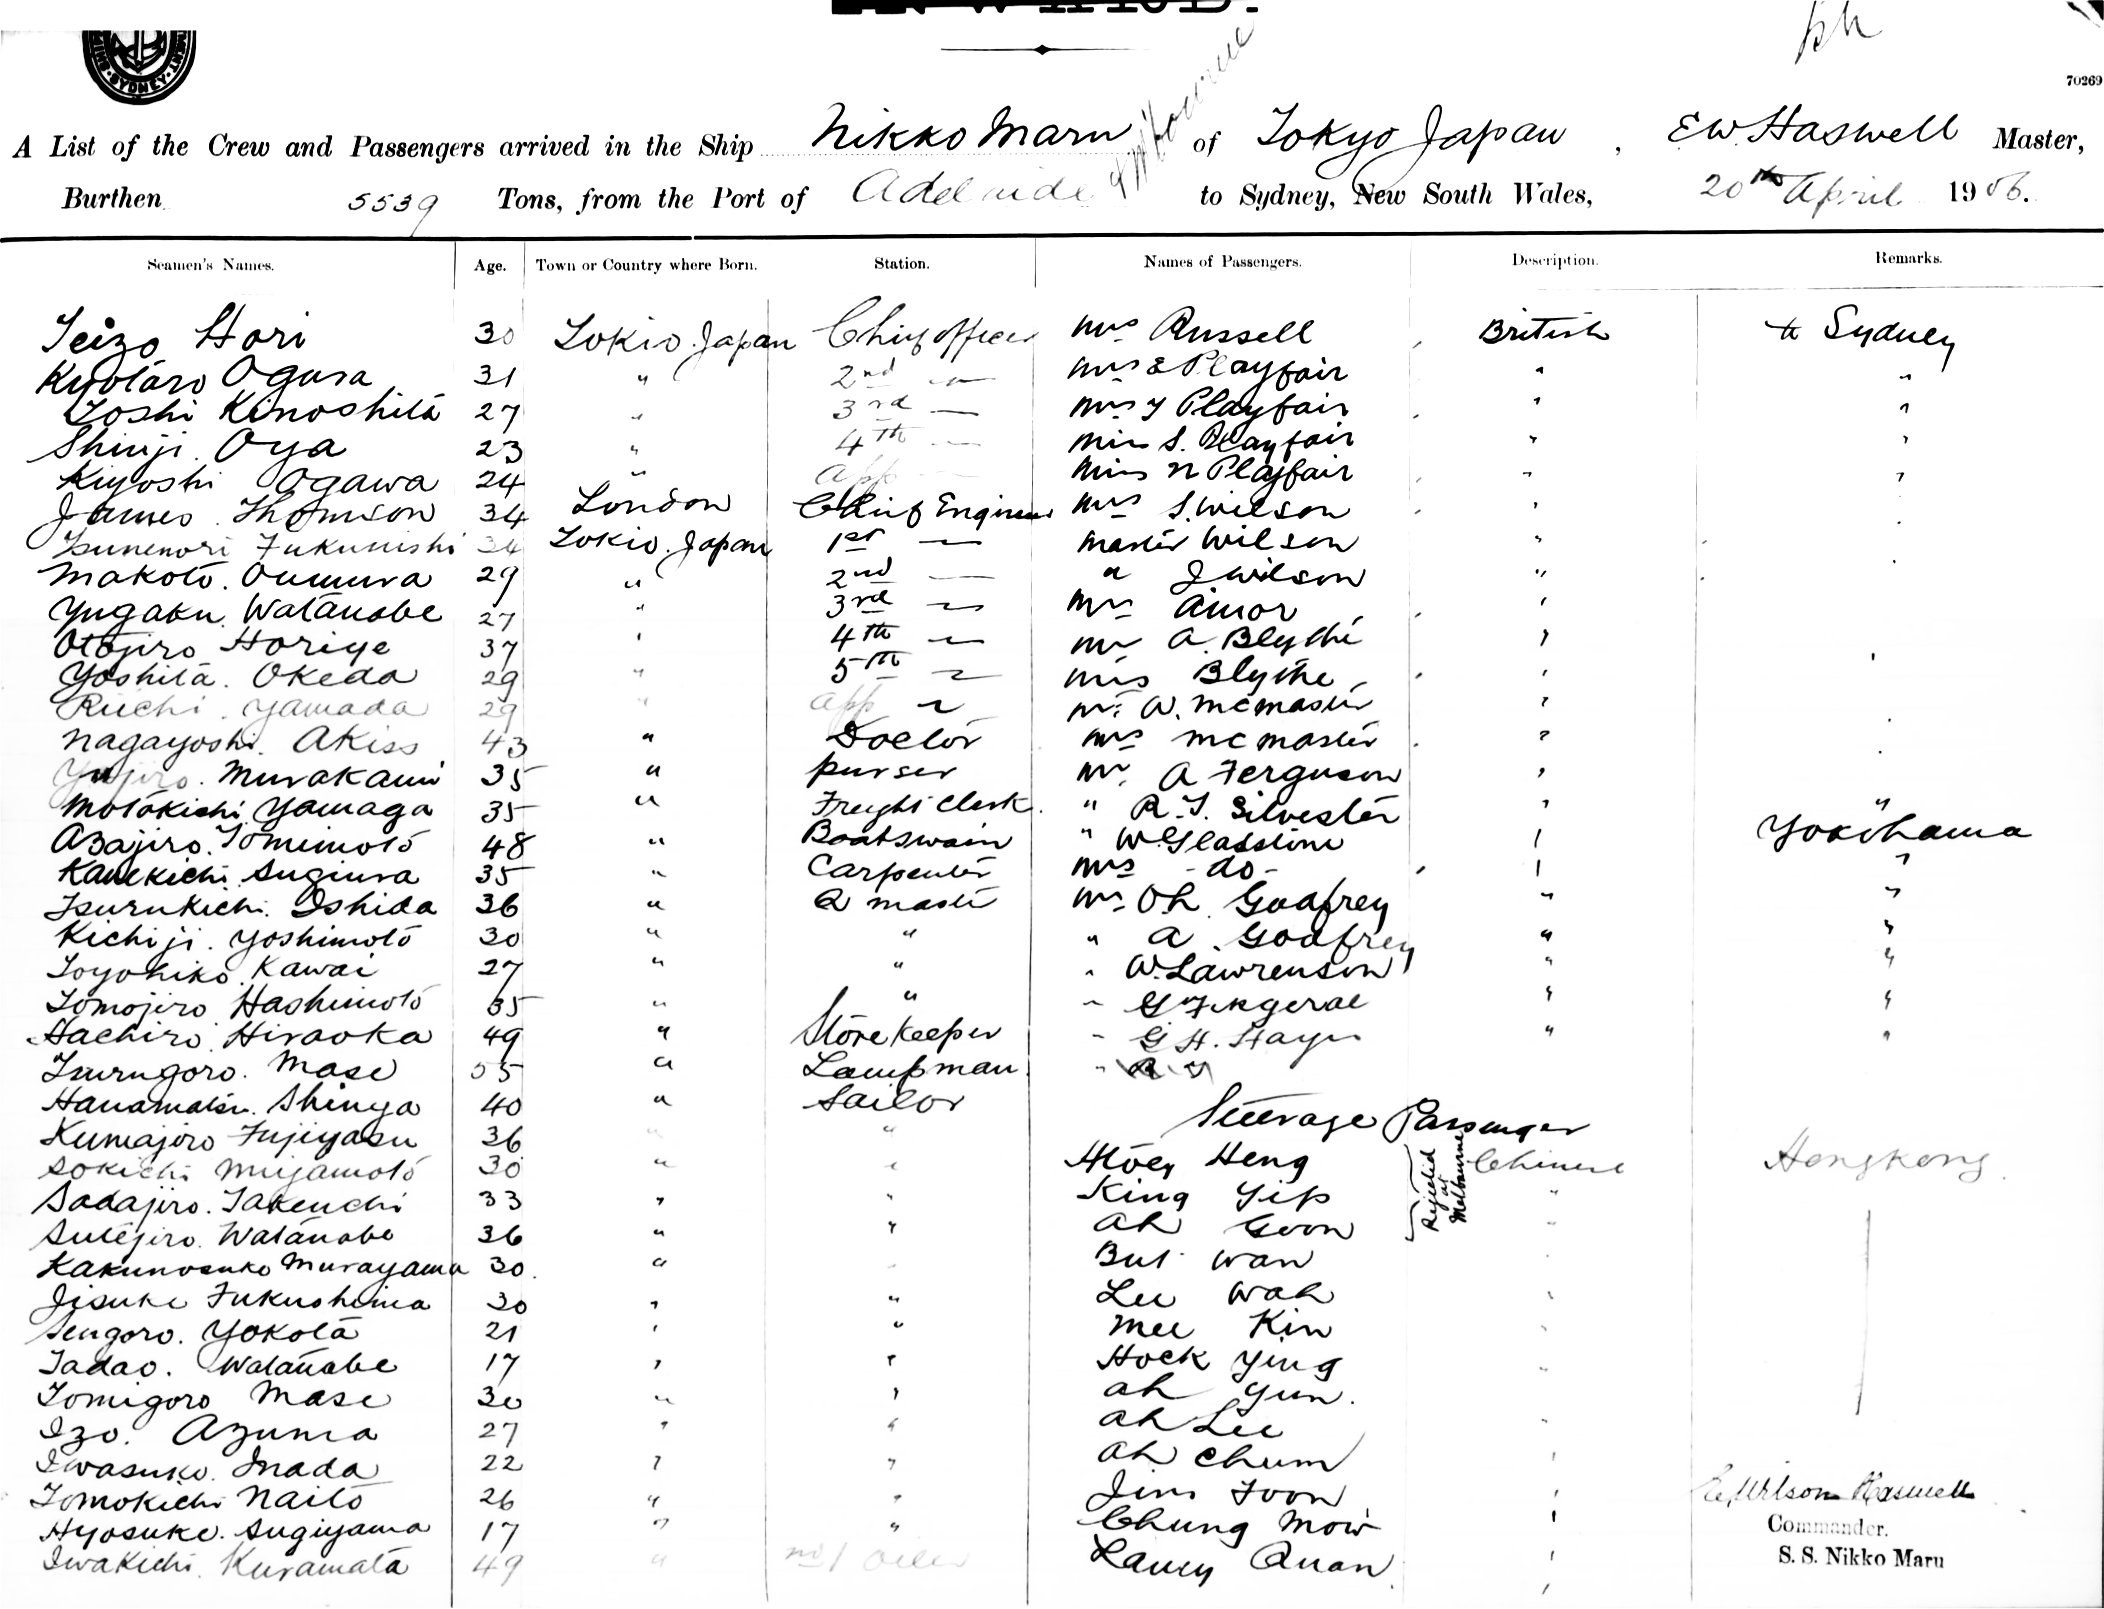 SYDNEY
70269
A List of the Crew and Passengers arrived in the Ship Nikko Maru of Tokyo Japan, E W. Haswell Master,
Burthen 5539 Tons, from the Port of Adelaide & Melbourne to Sydney, New South Wales, 20th April 1906.
Seamen's Names. Age. Town or Country where Born. Station. Names of Passengers. Description. Remarks.
Teizo Hori 30 Tokio. Japan Chief officer Mrs Russell British to Sydney
Kyotaro Ogura 31 " 2nd — Mrs E Playfair " "
Toshi Kinoshita 27 " 3rd — Playfair " "
Shinji. Oya 23 " 4th — Miss S. Playfair " "
Kiyoshi Ogawa 24 " app — Miss N Playfair " "
James Thomson 34 London Chief Engineer Mrs S. Wilson "
Tsunenori Fukunishi 34 Tokio. Japan 1st — Master Wilson "
Makoto. Oumura 29 " 2nd — " J Wilson "
Yugaku. Watanabe 27 " 3rd — Amor "
Otojiro Horiye 37 " 4th — Mr A. Blythe "
Yoshita. Okeda 29 " 5th — Blythe "
Riichi. Yamada 29 " app — Mr W. McMaster "
Nagayoshi. Akiss 43 " Doctor Mrs McMaster "
Yujiro. Murakami 35 " purser Mr. A Ferguson "
Motokichi Yamaga 35 " Freight Clerk. " R. T. Silvester " "
Azajiro. Tomimoto 48 " Boatswain " W. Gladstone " Yokohama
Kanekichi Sugiura 35 " Carpenter Mrs - do - " "
Tsurukichi. Ishida 36 " Q master Mr Ch. Godfrey " "
Kichiji. Yoshimoto 30 " " " A. Godfrey " "
Toyohiko. Kawai 27 " " " W. Lawrenson " "
Tomojiro Hashimoto 35 " " " G " "
Hachiro. Hiraoka 49 " Storekeeper " G H. Hayes " "
Tsurugoro. Mase 55 " Lampman "
Hanamatsu. Shinya 40 " Sailor Steerage Passenger
Kumajiro Fujiyasu 36 " " Heng Chinese Hongkong
Sokichi Miyamoto 30 " " King Yip "
Sadajiro. Takeuchi 33 " " Ah Goon "
Rejected at Melbourne
Sutejiro. Watanabe 36 " " But Wan
Kakunosuke Murayama 30. " Lee Wah
Jisuke Fukushima 30 " " Mee Kin
Sengoro. Yokota 21 " " Hock Ying
Tadao. Watanabe 17 " " Ah Yun.
Tomigoro Mase 30 " " Ah Lee
Izo. Azuma 27 " " Ah Chum
Iwasuke. Inada 22 " " Jim Foon
Tomokichi Naito 26 " " Chung Mow
Hyosuke. Sugiyama 17 " " Quan
Iwakichi. Kuramata 49 " No 1 oiler
E Wilson Haswell
Commander.
S. S. Nikko Maru